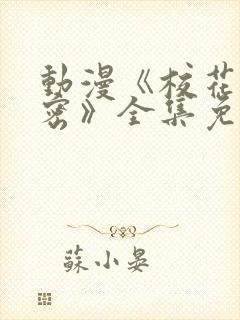 動漫《校花
密》全集免
蘇小晏